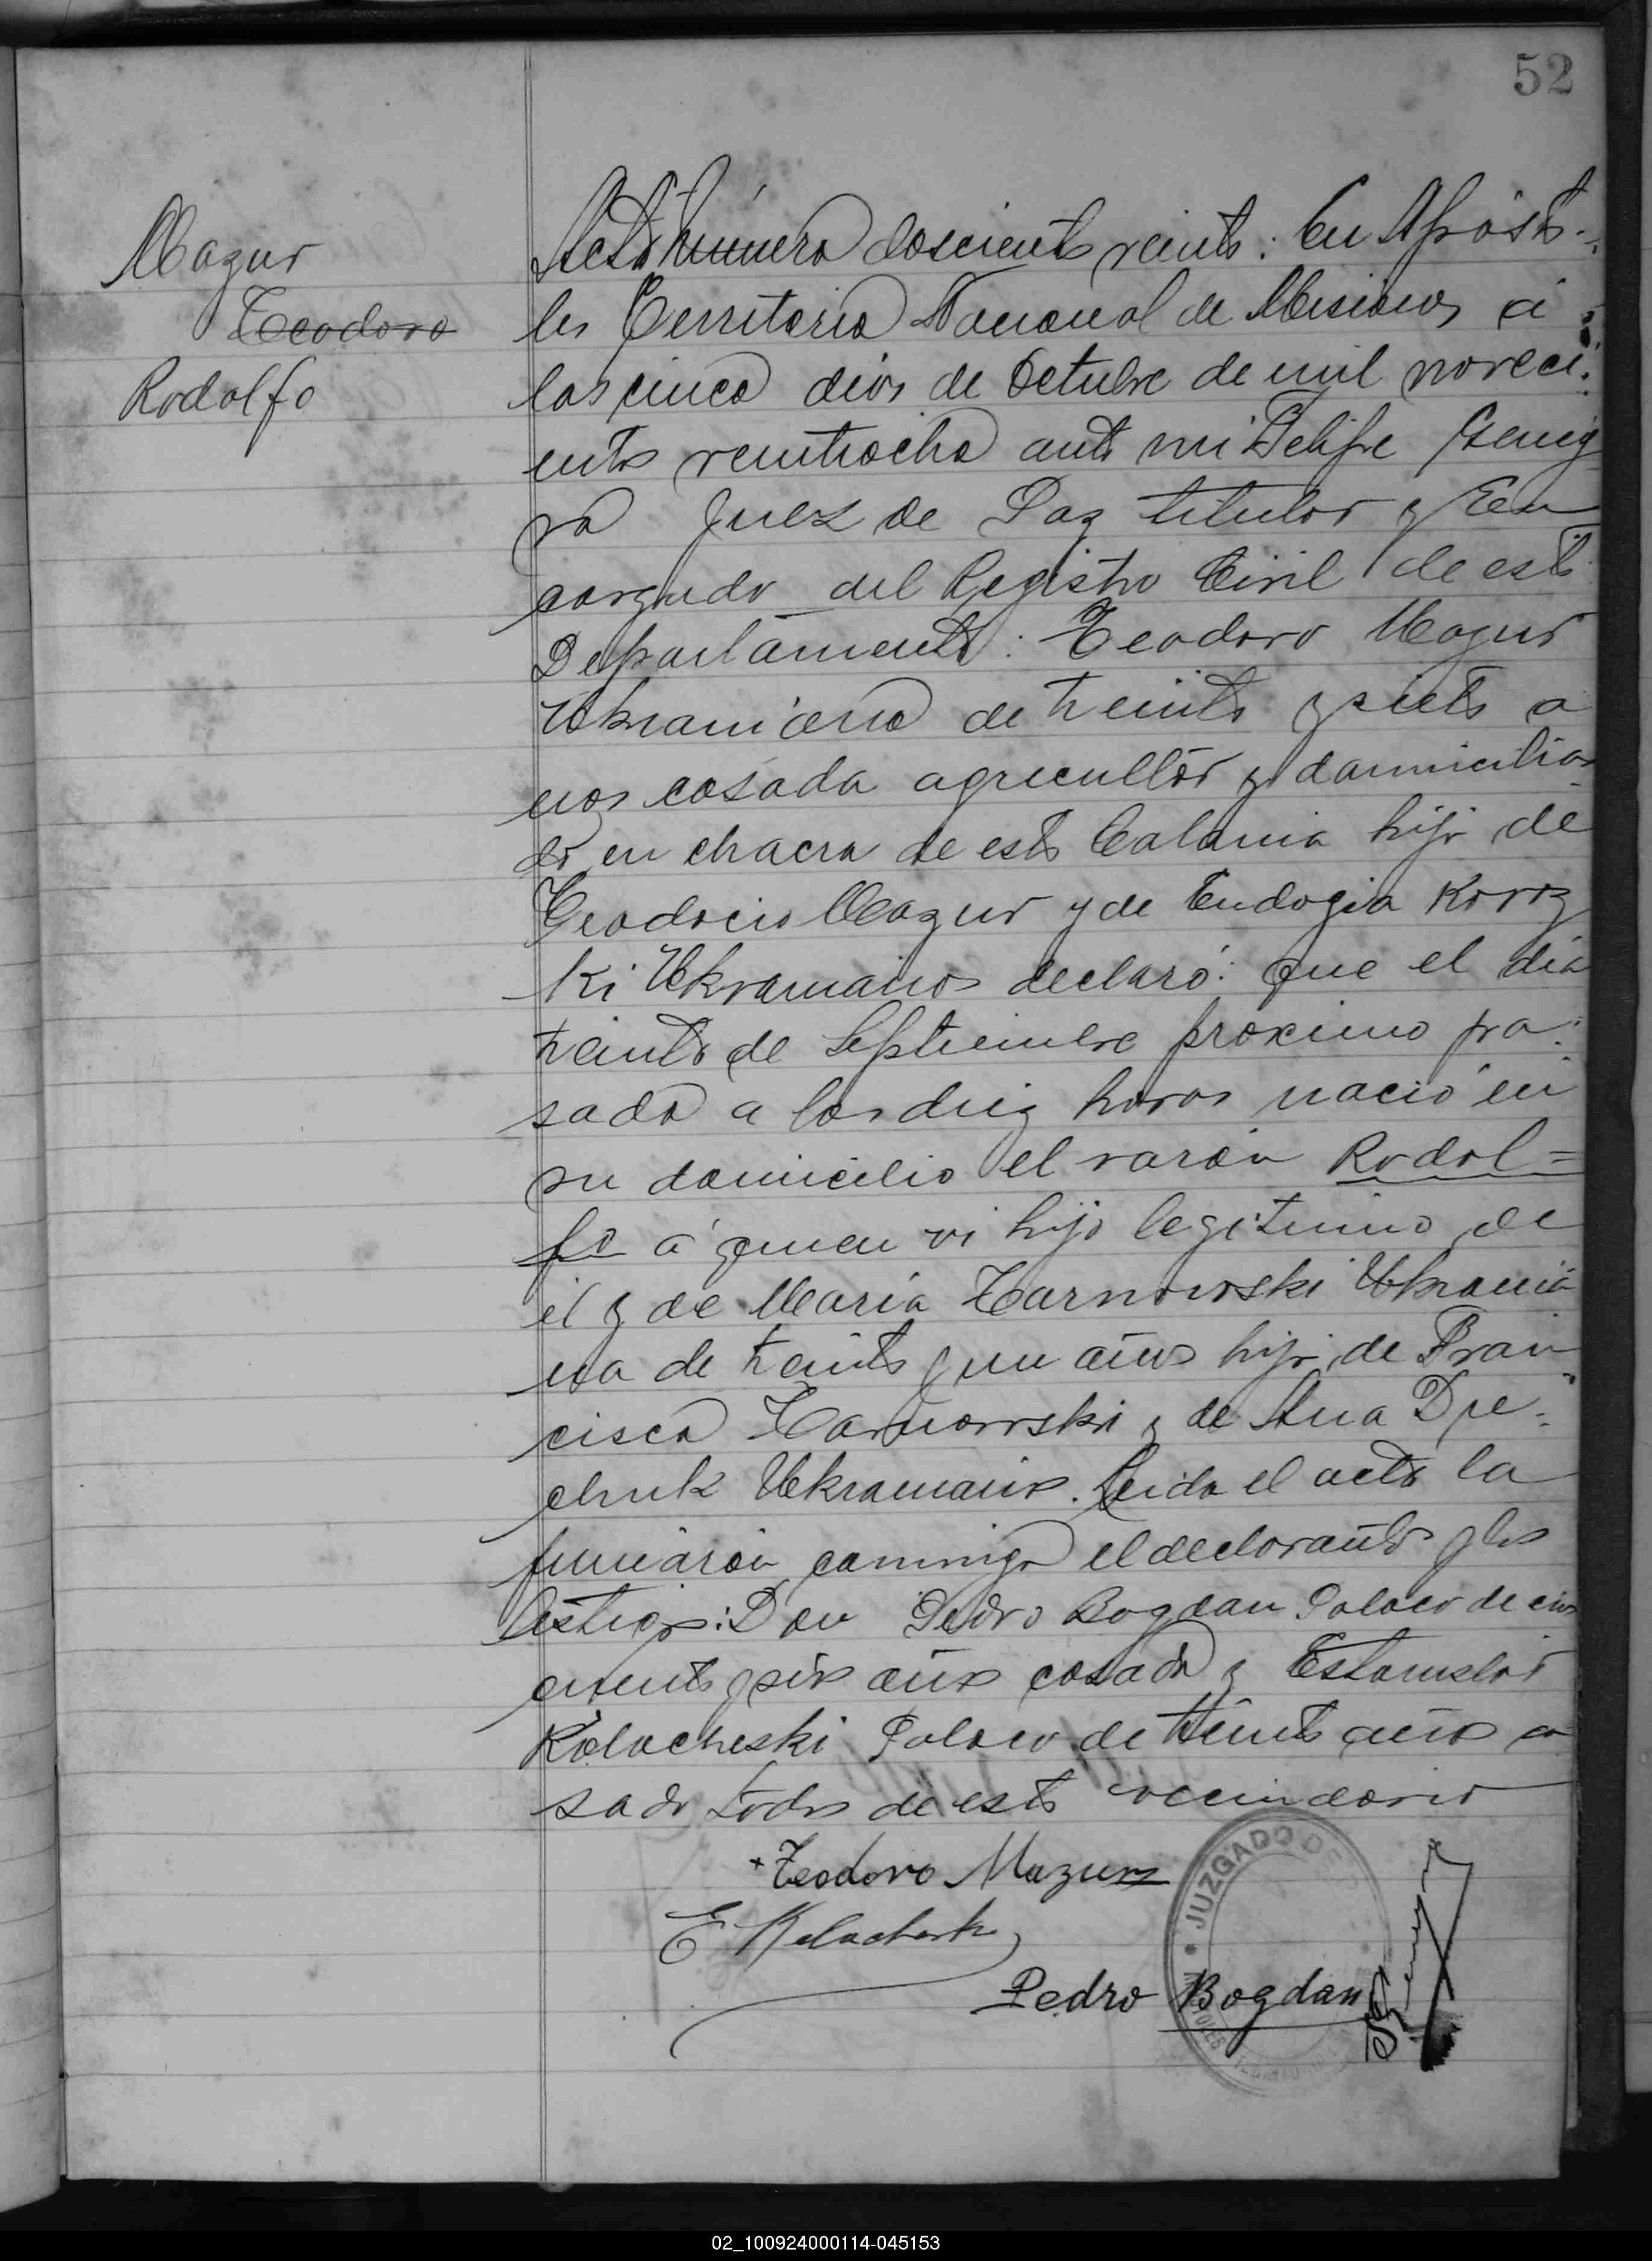 52
Mazur
Teodoro
Rodolfo
Acta Número doscientos veinte: En Apósto-
les Territorio Nacional de Misiones á
los cinco dias de Octubre de mil noveci-
entos veintiocho ante mi Felipe
Juez de Paz titular y En
cargado del Registro Civil de este
Departamento: Teodoro Mazur
Ukraniano de treinta y siete a
ños casado agricultor y domicilia
do en chacra de esta Colonia hijo de
Teodocio Mazur y de Eudogia Koroz
ki Ukranianos declaró: Que el dia
treinta de Septiembre proximo pa-
sado a las diez horas nació en
su domicilio el varón Rodol=
fo á quien vi hijo legitimo de
él y de Maria Tarnowski Ukrania
na de treinta y un años hija de Fran
cisco Tarnowski y de Ana Dre-
chuk Ukranianos. Leida el acta la
firmarón conmigo el declarante y los
testigos: Don Pedro Bogdan Polaco de cin
cuenta y seis años casado y Estanislao
Kolacheski Polaco de treinta años ca
sado todos de este vecindario
+Teodoro Mazur
E Kolacheski
Pedro Bogdan
JUZGADO DE
02_100924000114-045153